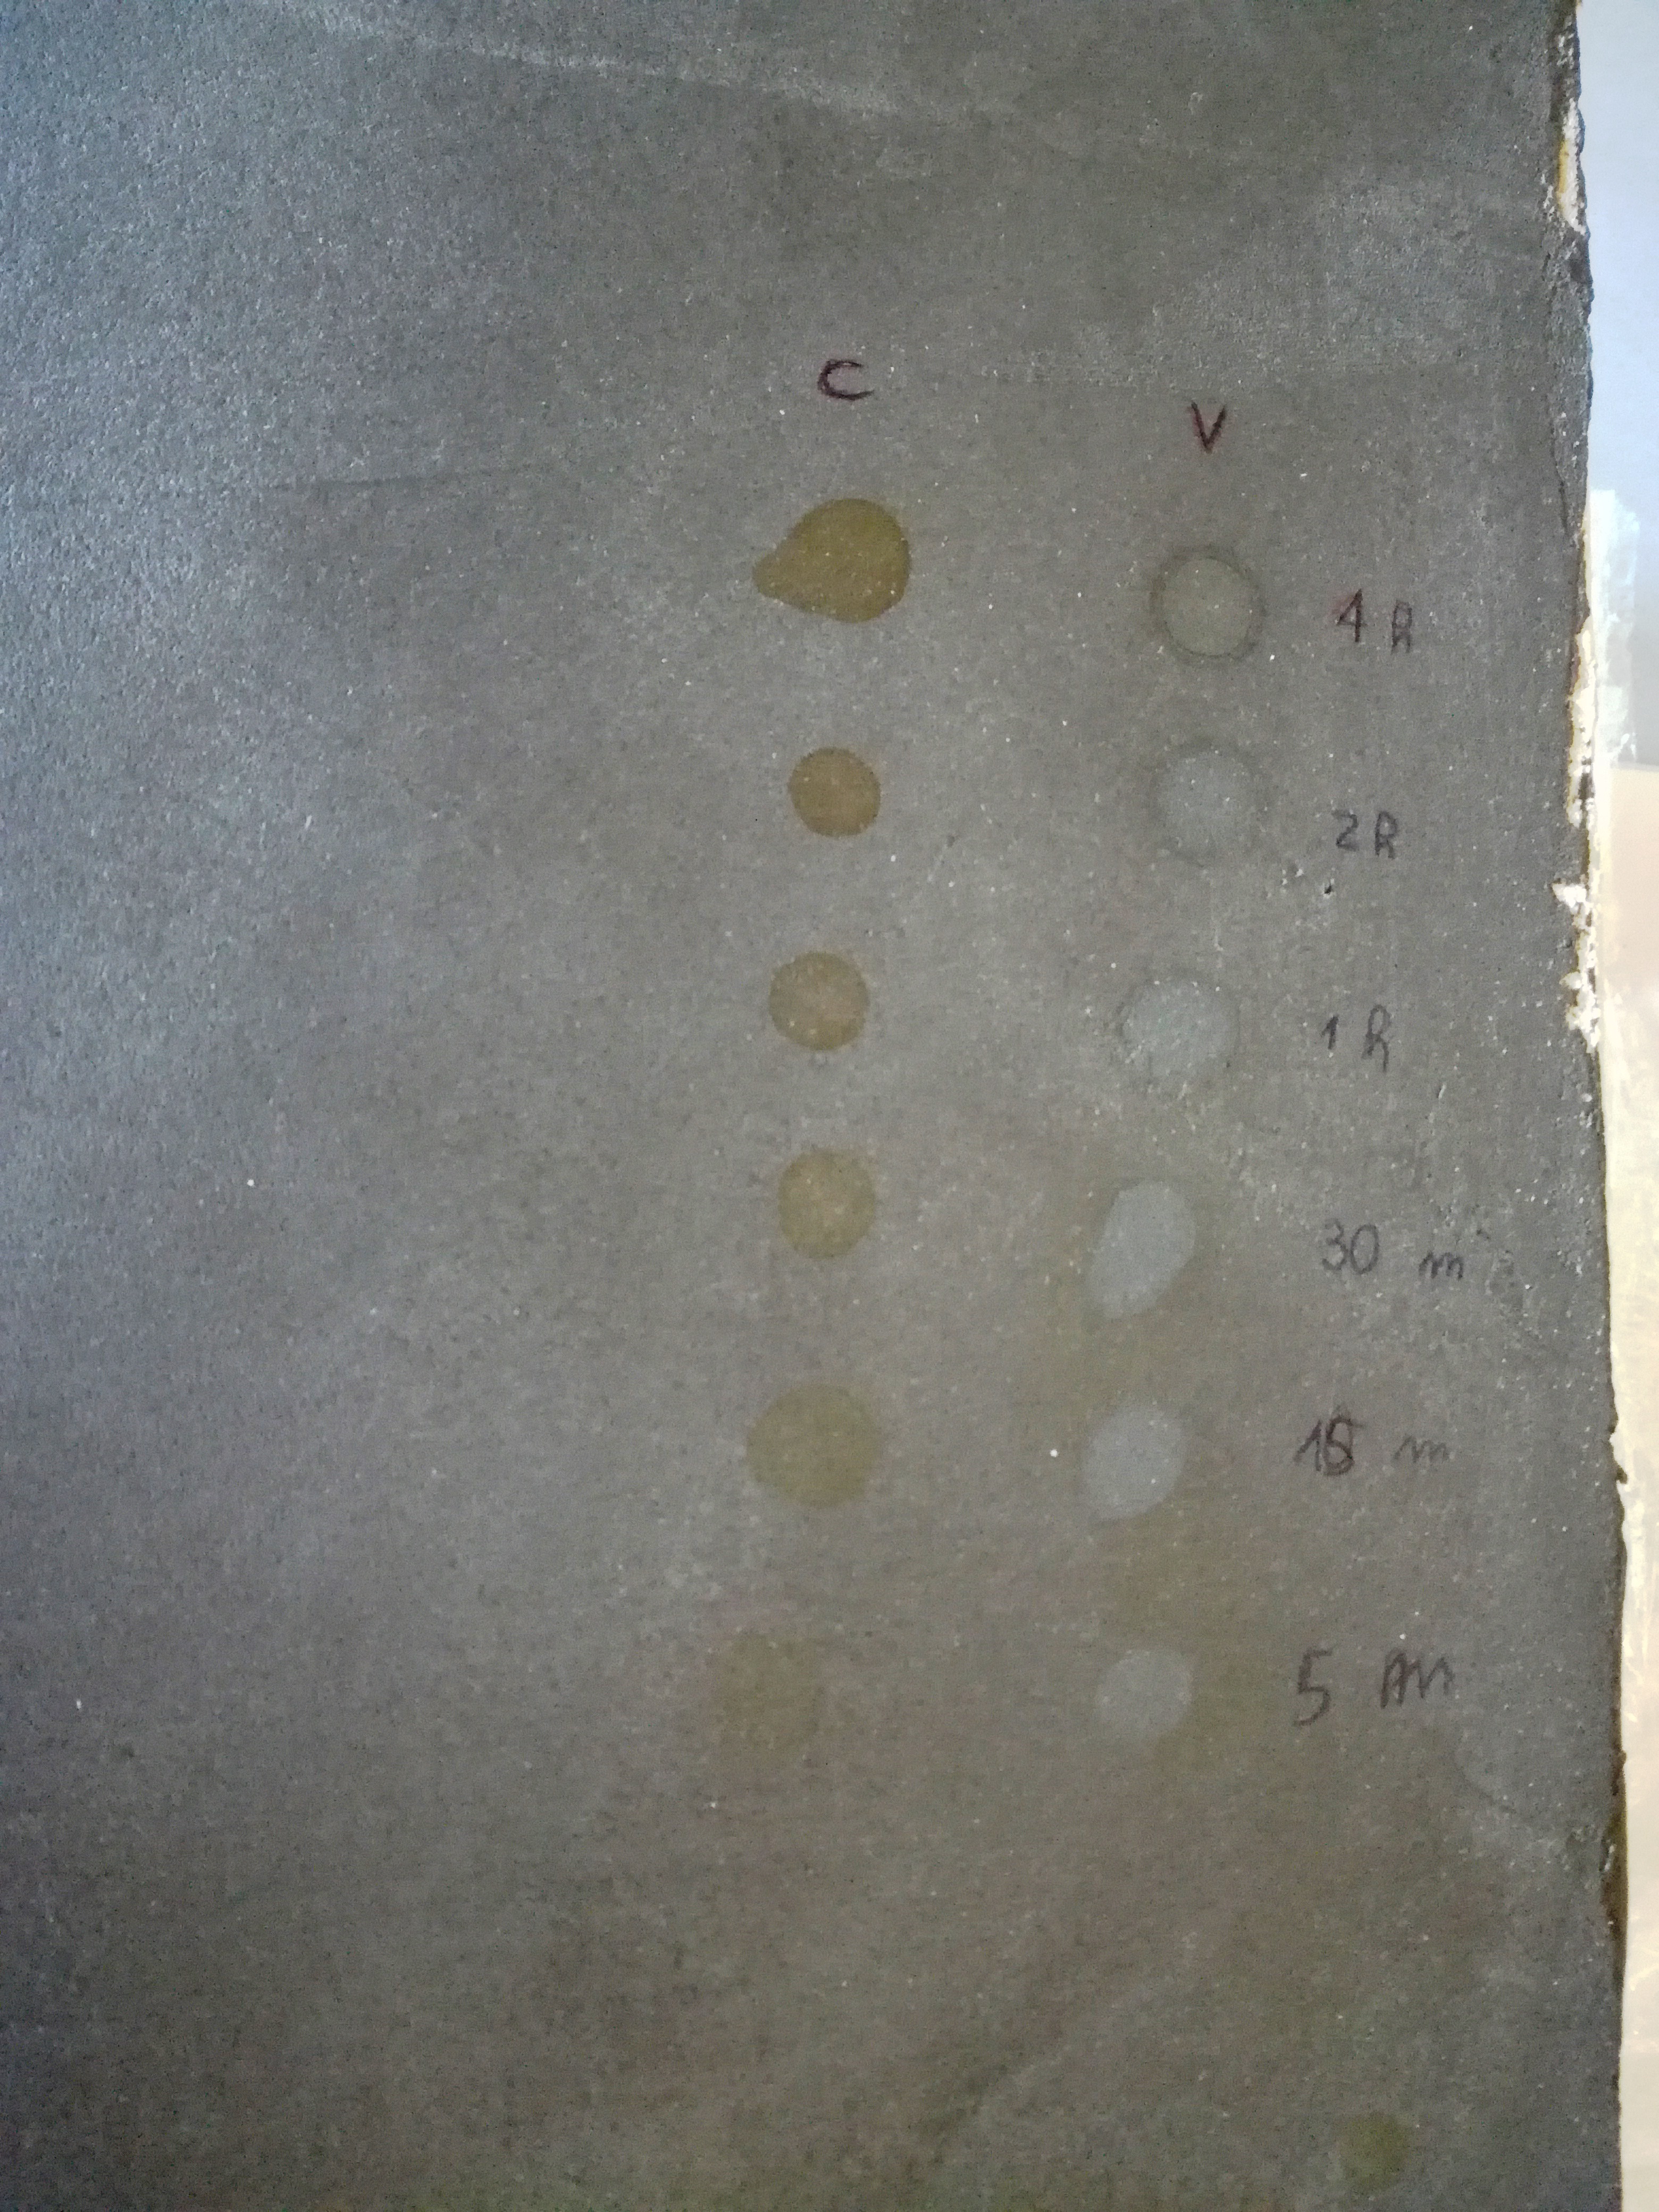 C V
4 h
2 h
1 h
30 m
15 m
5 m